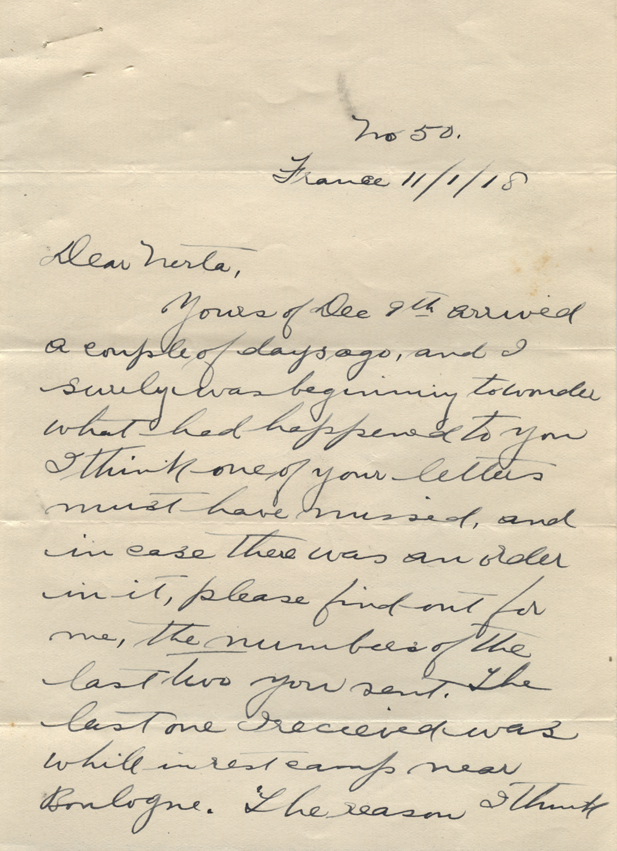 No 50.
France 11/1/18
Dear Nerta,
Yours of Dec 9th arrived
a couple of days ago, and I
surely was beginning to wonder
what had happened to you
I think one of your letters
must have missed, and
in case there was an order
in it, please find out for
me, the numbers of the
last two you sent. The
last one I recieved was
while in rest camp near
Boulogne. The reason I think